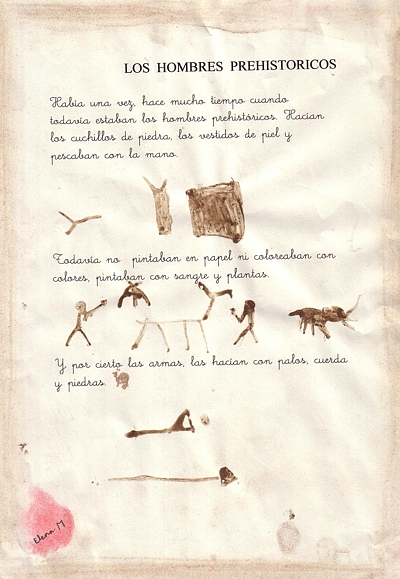 LOS HOMBRES PREHISTORICOS
Había una vez, hace mucho tiempo cuando
todavía estaban los hombres prehistóricos. Hacían
los cuchillos de piedra, los vestidos de piel y
pescaban con la mano.
Todavía no pintaban en papel ni coloreaban con
colores, pintaban con sangre y plantas.
Y por cierto las armas, las hacían con palos, cuerda
y piedras.
Elena M